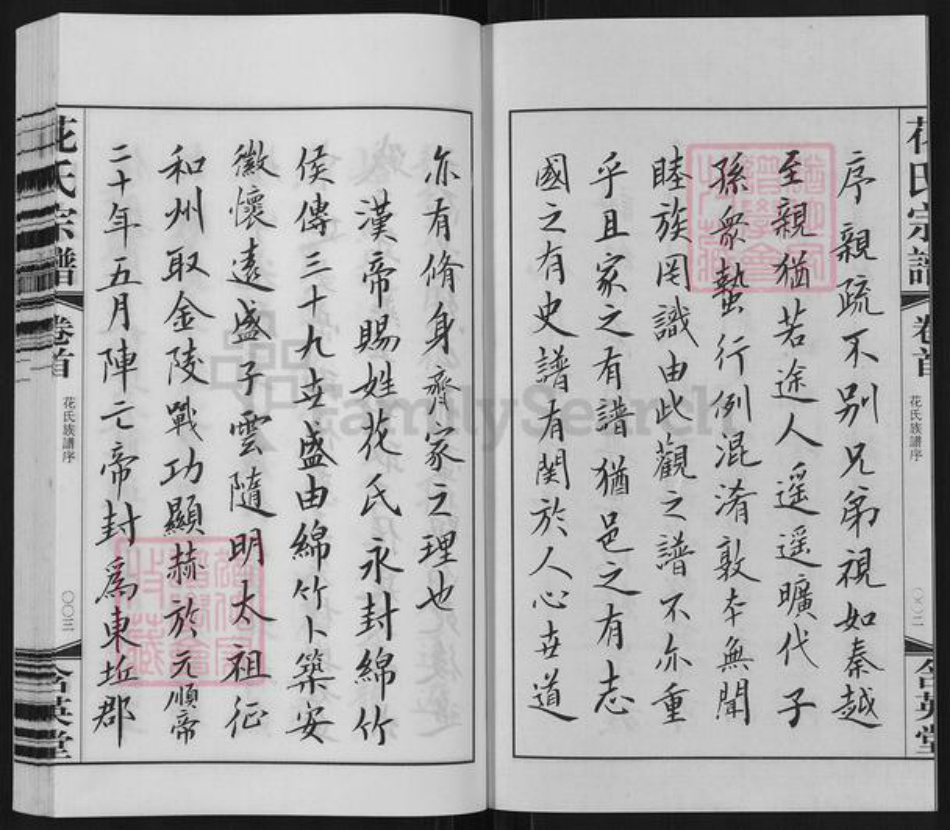 花氏宗譜
卷首
花氏族譜序
〇〇二
含英堂
序親疏不別兄弟視如秦越
至親猶若途人遥遥曠代子
孫衆蟄行例混淆敦本無聞
睦族罔識由此觀之譜不亦重
乎且家之有譜猶邑之有志
國之有史譜有関於人心世道
亦有脩身齊家之理也
漢帝賜姓花氏永封綿竹
侯傳三十九世盛由綿竹卜築安
徽懷遠盛子雲隨明太祖征
和州取金陵戰功顯赫於元順帝
二十年五月陣亡帝封爲東坵郡
花氏宗譜
卷首
花氏族譜序
〇〇三
含英堂
FamilySearch